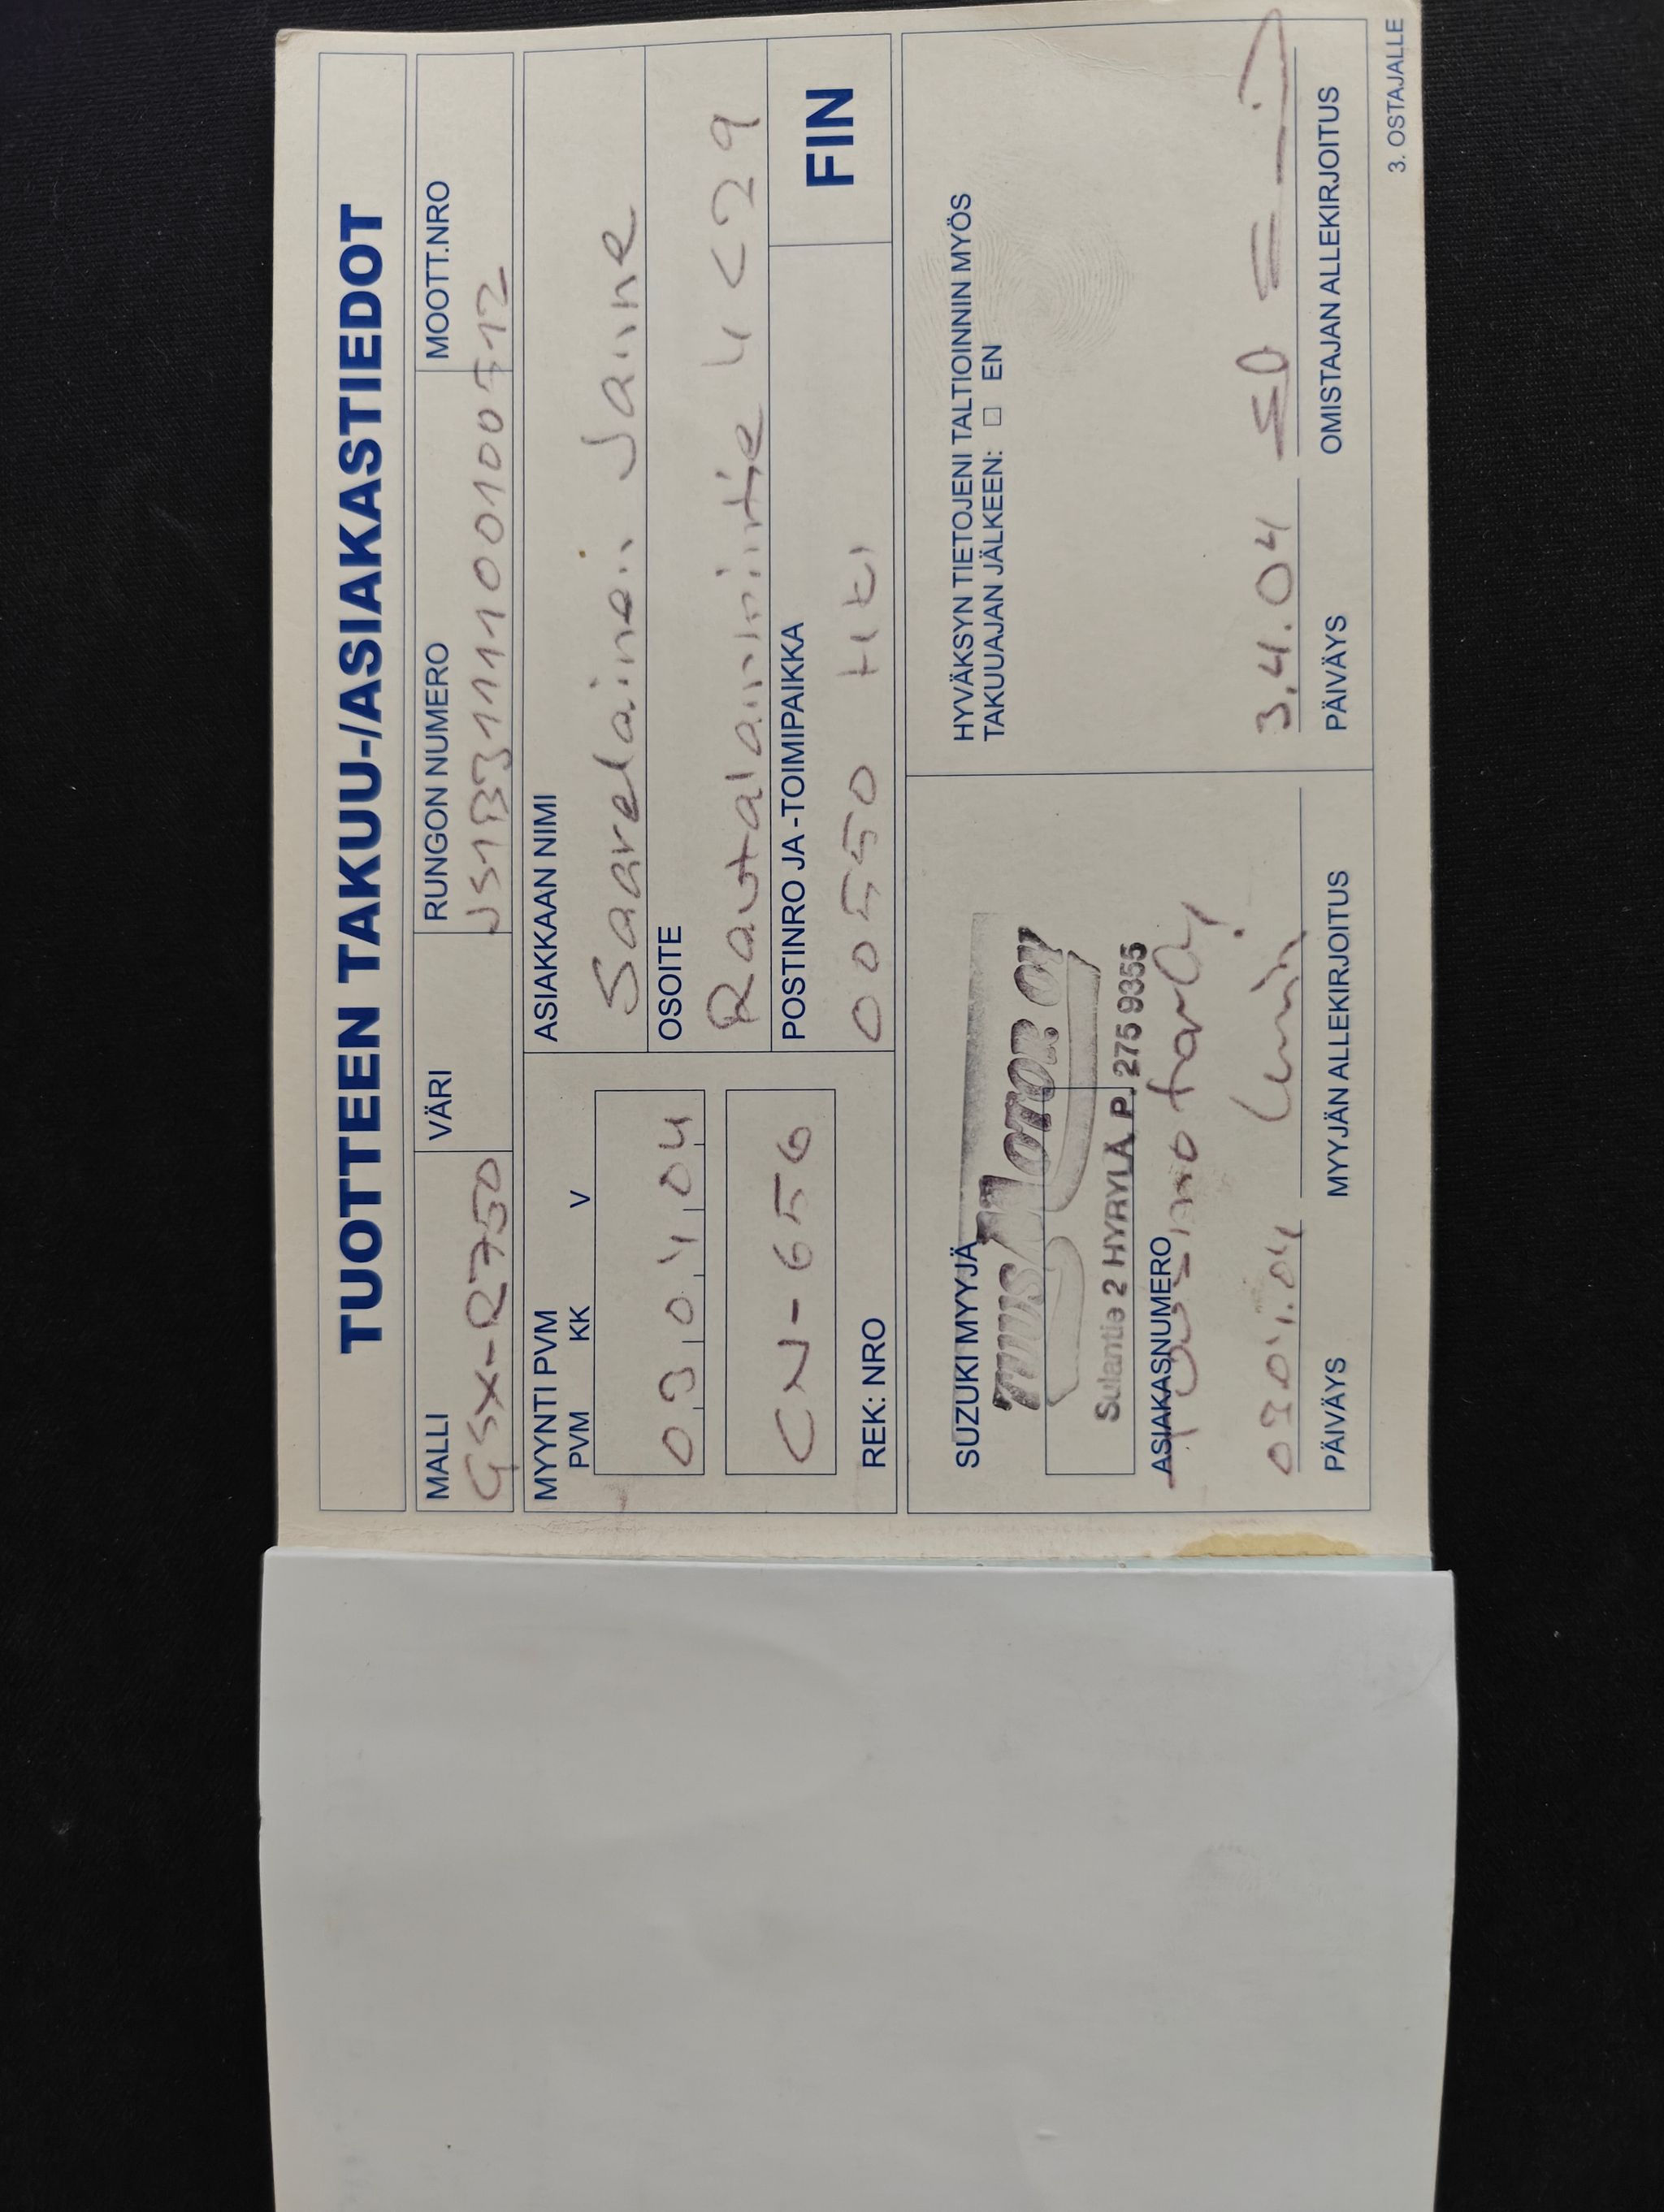 TUOTTEEN TAKUU-/ASIAKASTIEDOT
MALLI VÄRI RUNGON NUMERO MOOTT.NRO
GSX-R750 JS1B3111100100512
MYYNTI PVM
PVM KK V
03.04.04
CN-656
REK: NRO
ASIAKKAAN NIMI
Saarelainen Janne
OSOITE
Rautalammintie 4 C29
POSTINRO JA -TOIMIPAIKKA
00550 Hki
FIN
SUZUKI MYYJÄ
TUUSMOTOR OY
Sulantie 2 HYRYLÄ P. 275 9355
ASIAKASNUMERO
03.04.04
PÄIVÄYS MYYJÄN ALLEKIRJOITUS
HYVÄKSYN TIETOJENI TALTIOINNIN MYÖS
TAKUUAJAN JÄLKEEN: □ EN
3.4.04
PÄIVÄYS OMISTAJAN ALLEKIRJOITUS
3. OSTAJALLE